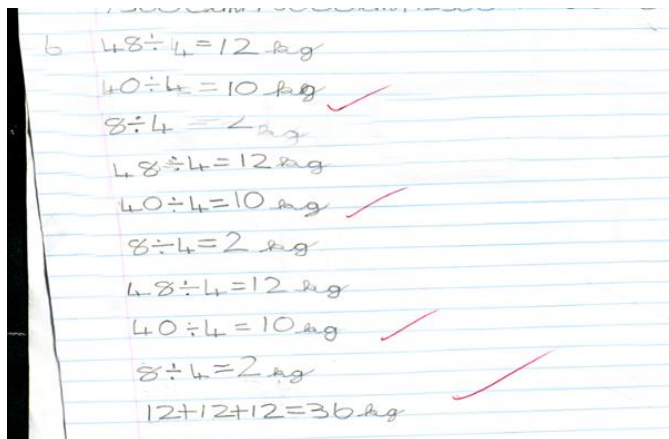 6 48÷4=12 kg
40÷4=10 kg
8÷4=2kg
48÷4=12 kg
40÷4=10 kg
8÷4=2 kg
48÷4=12 kg
40÷4=10 kg
8÷4=2 kg
12+12+12=36 kg